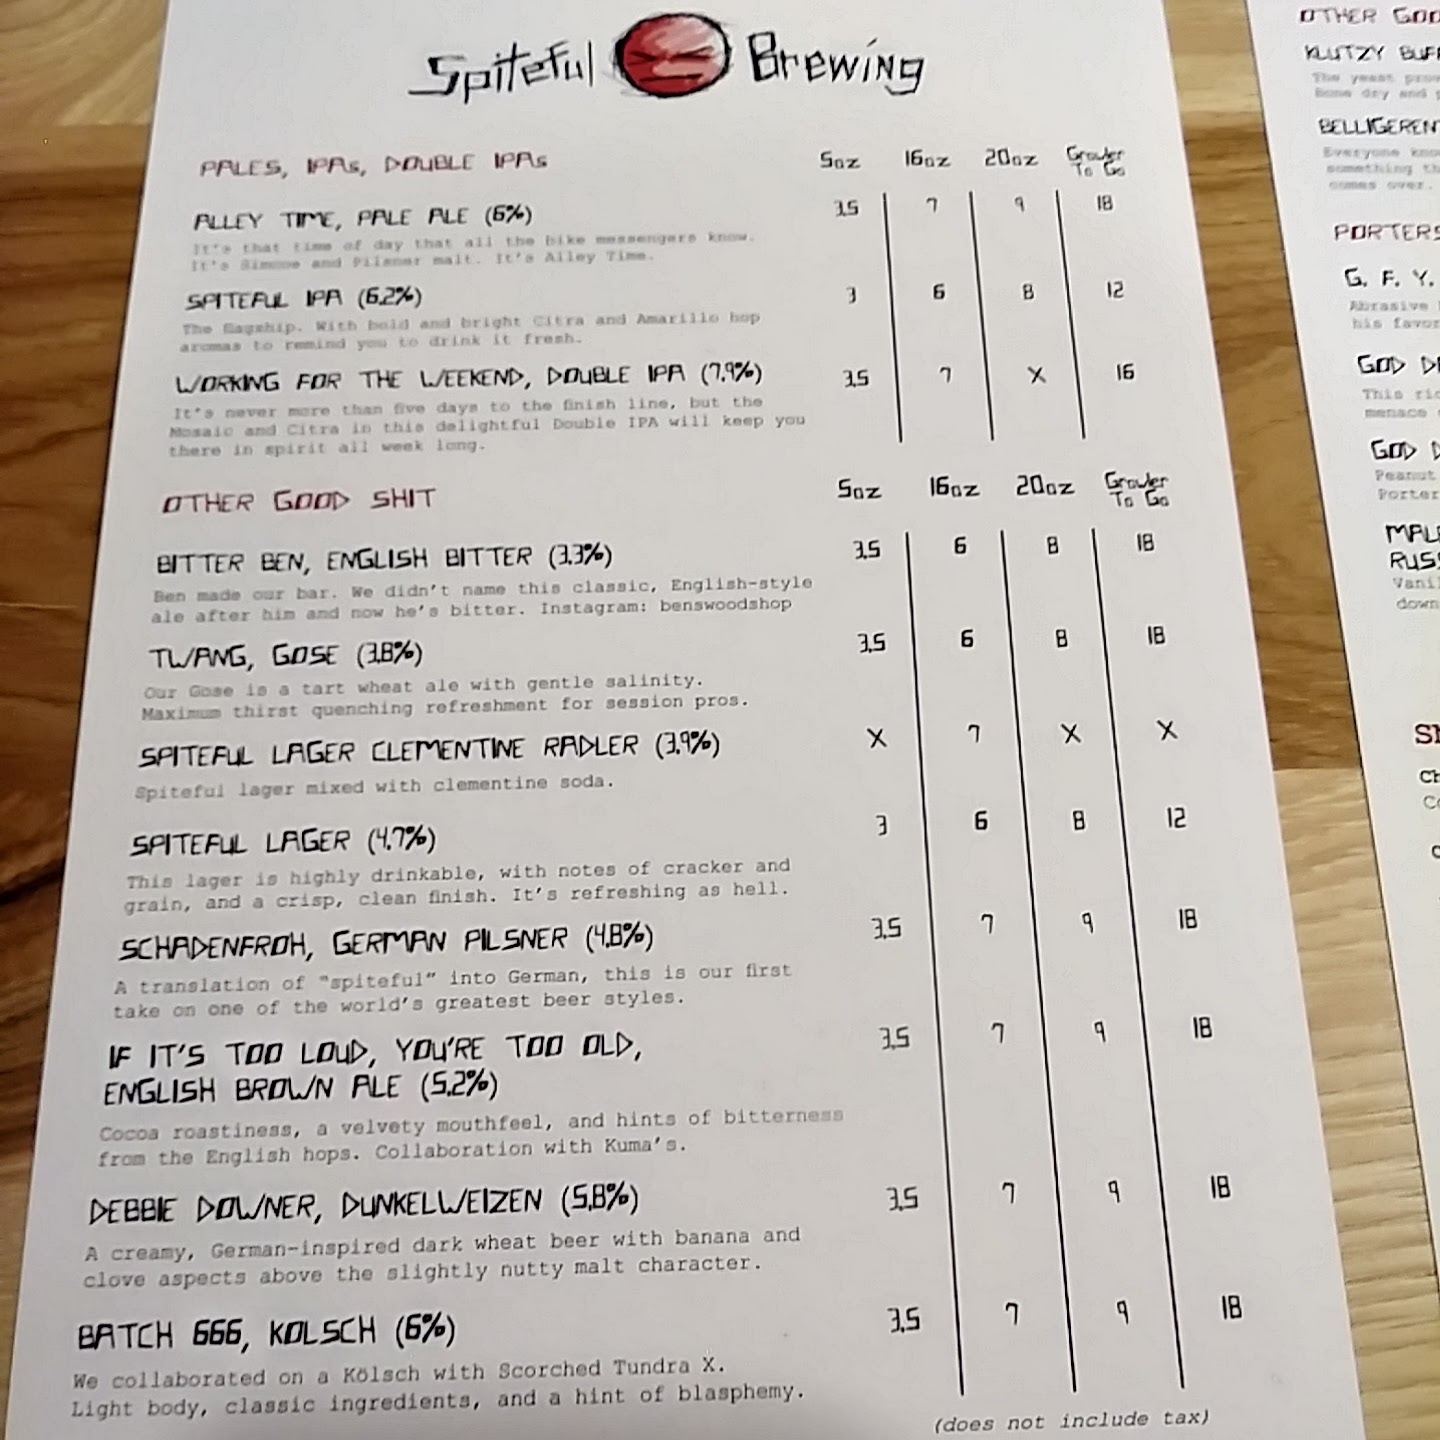 Spiteful Brewing
PALES, IPAs, DOUBLE IPAs 5oz 16oz 20oz Growler To Go
ALLEY TIME, PALE ALE (6%) 3.5 7 9 18
It's that time of day that all the bike messengers know.
It's Simcoe and Pilsner malt. It's Alley Time.
SPITEFUL IPA (6.2%) 3 6 8 12
The flagship. With bold and bright Citra and Amarillo hop
aromas to remind you to drink it fresh.
WORKING FOR THE WEEKEND, DOUBLE IPA (7.9%) 3.5 7 X 16
It's never more than five days to the finish line, but the
Mosaic and Citra in this delightful Double IPA will keep you
there in spirit all week long.
OTHER GOOD SHIT 5oz 16oz 20oz Growler To Go
BITTER BEN, ENGLISH BITTER (3.3%) 3.5 6 8 18
Ben made our bar. We didn't name this classic, English-style
ale after him and now he's bitter. Instagram: benswoodshop
TWANG, GOSE (3.8%) 3.5 6 8 18
Our Gose is a tart wheat ale with gentle salinity.
Maximum thirst quenching refreshment for session pros.
SPITEFUL LAGER CLEMENTINE RADLER (3.9%) X 7 X X
Spiteful lager mixed with clementine soda.
SPITEFUL LAGER (4.7%) 3 6 8 12
This lager is highly drinkable, with notes of cracker and
grain, and a crisp, clean finish. It's refreshing as hell.
SCHADENFROH, GERMAN PILSNER (4.8%) 3.5 7 9 18
A translation of "spiteful" into German, this is our first
take on one of the world's greatest beer styles.
IF IT'S TOO LOUD, YOU'RE TOO OLD, 3.5 7 9 18
ENGLISH BROWN ALE (5.2%)
Cocoa roastiness, a velvety mouthfeel, and hints of bitterness
from the English hops. Collaboration with Kuma's.
DEBBIE DOWNER, DUNKELWEIZEN (5.8%) 3.5 7 9 18
A creamy, German-inspired dark wheat beer with banana and
clove aspects above the slightly nutty malt character.
BATCH 666, KOLSCH (6%) 3.5 7 9 18
We collaborated on a Kölsch with Scorched Tundra X.
Light body, classic ingredients, and a hint of blasphemy.
(does not include tax)
OTHER
KLUTZY
The yeast
Bone dry and
BELLIGERENT
Everyone
something
comes over.
PORTERS
G. F. Y.
Abrasive
his
GOD
This
menace
GOD
Peanut
Porter
down